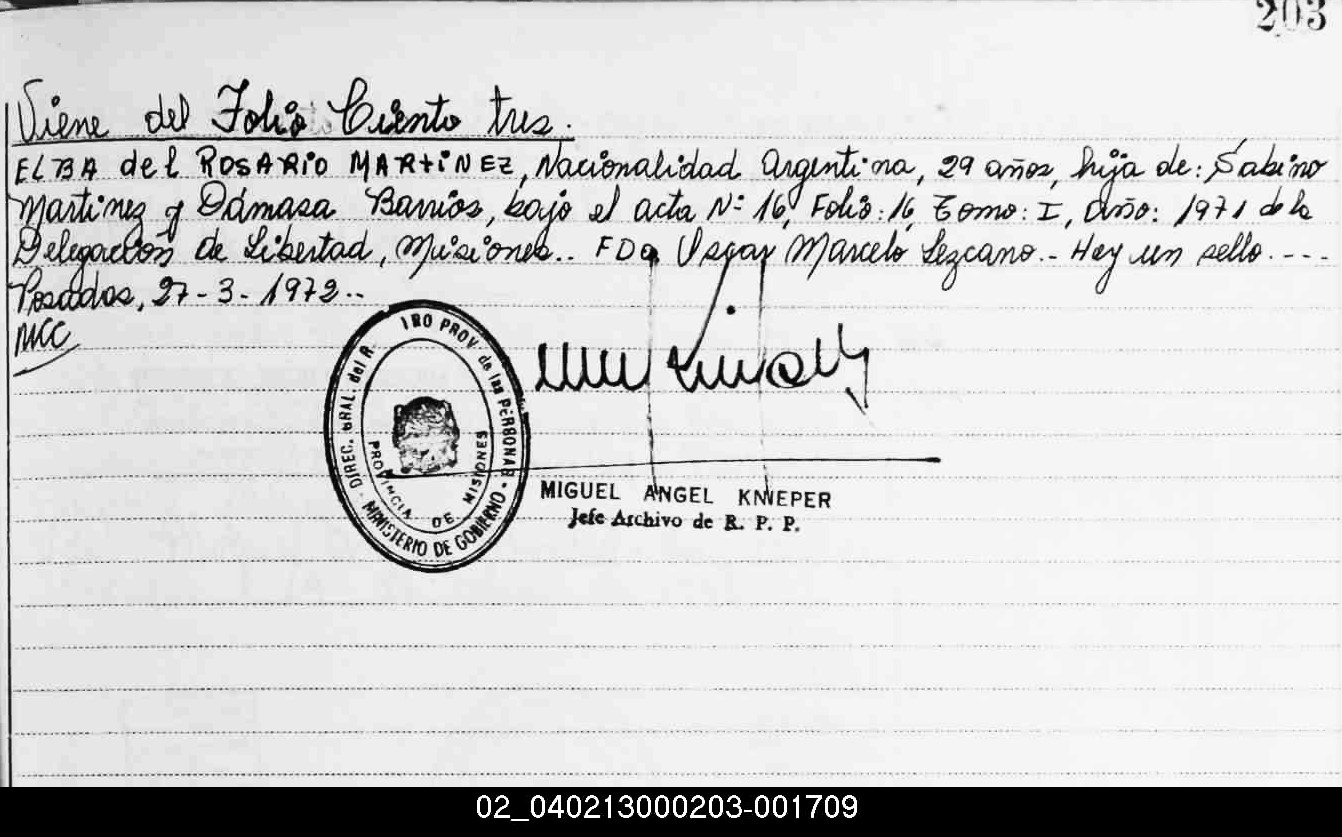 203
Viene del Folio Ciento tres.
ELBA del ROSARIO MARTINEZ, Nacionalidad Argentina, 29 años, hija de: Sabino
Martinez y Dámasa Barrios, bajo el acta Nº 16, Folio: 16, Tomo: I, Año: 1971 de la
Delegación de Libertad, Misiones.. FDO Oscar Marcelo Lezcano.- Hay un sello.---
Posadas, 27-3-1972..
MCC
DIREC. GRAL. del R. TRO PROV. de las PERSONAS - MINISTERIO DE GOBIERNO -
PROVINCIA DE MISIONES
MIGUEL ANGEL KNIEPER
Jefe Archivo de R. P. P.
02_040213000203-001709